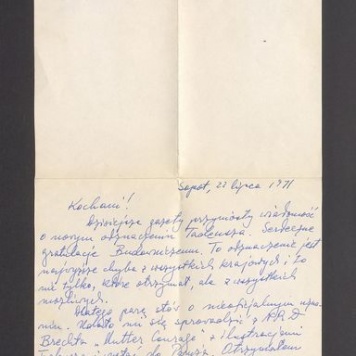 Sopot, 22 lipca 1971
Kochani!
Dzisiejsze gazety przyniosły wiadomość
o nowym odznaczeniu Tadeusza. Serdeczne
gratulacje Budowniczemu. To odznaczenie jest
najwyższe chyba z wszystkich krajowych i to
nie tylko, które otrzymał, ale z wszystkich
możliwych.
Dlatego parę słów o nieoficjalnym
Udało mi się sprowadzić z NRD
Brechta „Mutter Courage" z ilustracjami
Otrzymałem